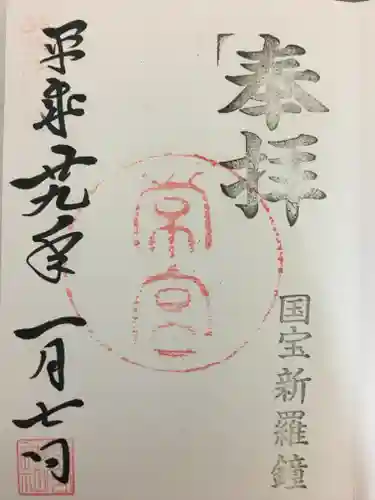 奉拝
国宝新羅鐘
常宮
平成廿九年一月七日